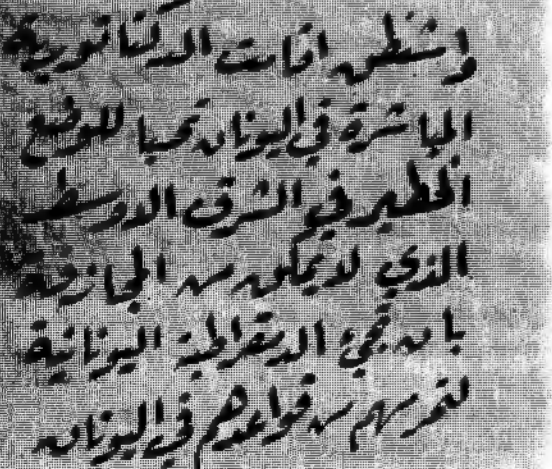 واشنطن اقامت الدكتاتورية
المباشرة في اليونان تحسبا للوضع
الخطير في الشرق الاوسط
الذي لا يمكن من المجازفة
بان تجيء الديمقراطية اليونانية
لتحرمهم من قواعدهم في اليونان